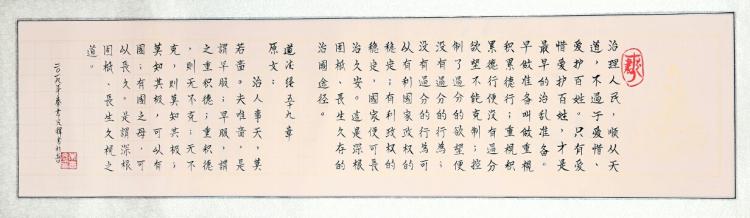 治理人民，顺从天
道，不过于爱惜、
爱护百姓。只有爱
惜爱护百姓，才是
最早的治乱准备。
早做准备叫做重视
积累德行；重视积
累德行便没有过分
欲望不能克制；控
制了过分的欲望便
没有过分的行为；
没有过分的行为可
从有利國家政权的
稳定；有利政权的
稳定，國家便可长
治久安。这是深根
固柢、长生久存的
治國途径。
道法经五十九章
原文：
治人事天，莫
若啬。夫唯啬，是
谓早服；早服，谓
之重积德；重积德
，则无不克；无不
克，则莫知其极；
莫知其极，可以有
國；有國之母，可
以长久。是谓深根
固柢、长生久视之
道。
二〇一九年春